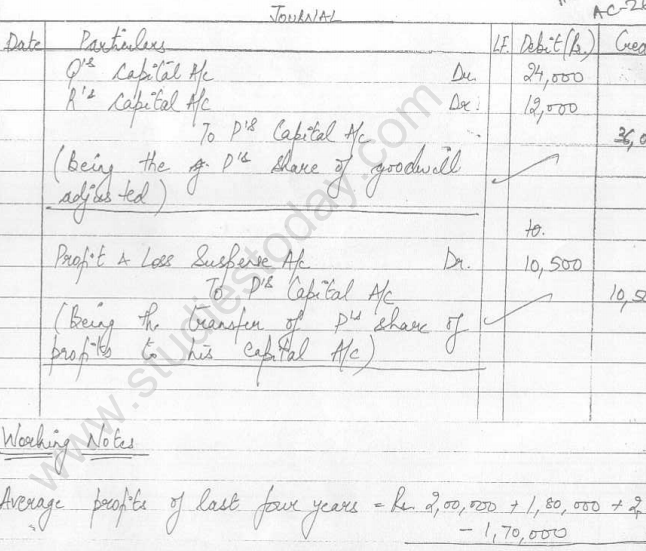 JOURNAL
AC-2
Date Particulars L.F. Debit (Rs.) Cred
Q's Capital A/c Dr. 24,000
R's Capital A/c Dr. 12,000
To P's Capital A/c 36,0
(Being the P's share of goodwill
adjusted)
to.
Profit & Loss Suspense A/c Dr. 10,500
To P's Capital A/c 10,5
(Being the transfer of P's share of
profits to his capital A/c)
Working Notes
Average profits of last four years = Rs. 2,00,000 + 1,80,000 + 2,
- 1,70,000
www.studiestoday.com